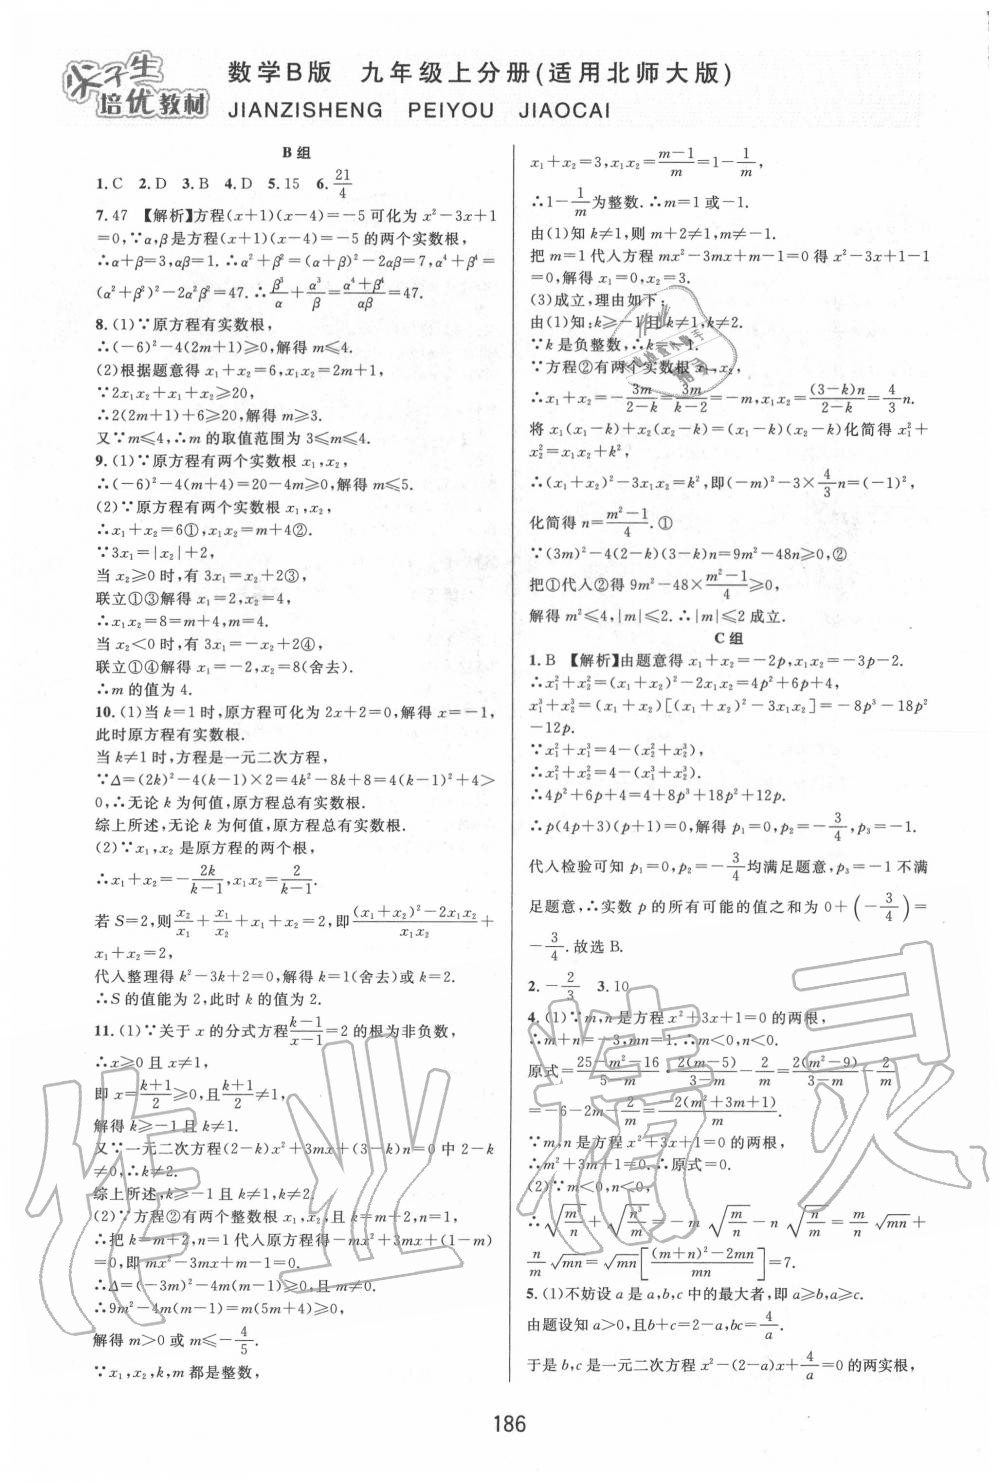 尖子生
培优教材
数学B版 九年级上分册(适用北师大版)
JIANZISHENG PEIYOU JIAOCAI
B 组
1. C 2. D 3. B 4. D 5. 15 6. 21/4
7. 47 【解析】方程(x+1)(x-4)=-5可化为 x²-3x+1
=0,∵α,β是方程(x+1)(x-4)=-5的两个实数根,
∴α+β=3,αβ=1. ∴α²+β²=(α+β)²-2αβ=7,α⁴+β⁴=
(α²+β²)²-2α²β²=47. ∴β³/α+α³/β=(α⁴+β⁴)/αβ=47.
8. (1)∵原方程有实数根,
∴(-6)²-4(2m+1)≥0,解得 m≤4.
(2)根据题意得 x₁+x₂=6,x₁x₂=2m+1,
∵2x₁x₂+x₁+x₂≥20,
∴2(2m+1)+6≥20,解得 m≥3.
又∵m≤4,∴m的取值范围为 3≤m≤4.
9. (1)∵原方程有两个实数根 x₁,x₂,
∴(-6)²-4(m+4)=20-4m≥0,解得 m≤5.
(2)∵原方程有两个实数根 x₁,x₂,
∴x₁+x₂=6①,x₁x₂=m+4②.
∵3x₁=|x₂|+2,
当 x₂≥0时,有 3x₁=x₂+2③,
联立①③解得 x₁=2,x₂=4,
∴x₁x₂=8=m+4,m=4.
当 x₂<0时,有 3x₁=-x₂+2④,
联立①④解得 x₁=-2,x₂=8(舍去).
∴m的值为 4.
10. (1)当 k=1时,原方程可化为 2x+2=0,解得 x=-1,
此时原方程有实数根.
当 k≠1时,方程是一元二次方程,
∵Δ=(2k)²-4(k-1)×2=4k²-8k+8=4(k-1)²+4>
0,∴无论 k 为何值,原方程总有实数根.
综上所述,无论 k 为何值,原方程总有实数根.
(2)∵x₁,x₂ 是原方程的两个根,
∴x₁+x₂=-2k/(k-1),x₁x₂=2/(k-1).
若 S=2,则x₂/x₁+x₁/x₂+x₁+x₂=2,即((x₁+x₂)²-2x₁x₂)/x₁x₂+
x₁+x₂=2,
代入整理得 k²-3k+2=0,解得 k=1(舍去)或 k=2.
∴S的值能为 2,此时 k 的值为 2.
11. (1)∵关于 x 的分式方程(k-1)/(x-1)=2的根为非负数,
∴x≥0且 x≠1.
即 x=(k+1)/2≥0,且(k+1)/2≠1,
解得 k≥-1且 k≠1.
又∵一元二次方程(2-k)x²+3mx+(3-k)n=0中 2-k
≠0,∴k≠2.
综上所述,k≥-1且 k≠1且 k≠2.
(2)∵方程②有两个整数根 x₁,x₂,且 k=m+2,n=1,
∴把 k=m+2,n=1代入原方程得-mx²+3mx+(1-m)
=0,即 mx²-3mx+m-1=0.
∴Δ=(-3m)²-4m(m-1)≥0,且 m≠0.
∴9m²-4m(m-1)=m(5m+4)≥0,
解得 m>0或 m≤-4/5.
∵x₁,x₂,k,m都是整数,
x₁+x₂=3,x₁x₂=(m-1)/m=1-1/m,
∴1-1/m为整数. ∴m=1或-1.
由(1)知 k≠1,则 m+2≠1,m≠-1.
把 m=1代入方程 mx²-3mx+m-1=0得 x²-3x+1-1
=0,解得 x₁=0,x₂=3.
(3)成立,理由如下:
由(1)知:k≥-1且 k≠1,k≠2.
∵k是负整数,∴k=-1.
∵方程②有两个实数根 x₁,x₂,
∴x₁+x₂=-3m/(2-k)=3m/(k-2)=-m,x₁x₂=(3-k)n/(2-k)=4/3n.
将 x₁(x₁-k)+x₂(x₂-k)=(x₁-k)(x₂-k)化简得 x₁²+
x₂²=x₁x₂+k²,
∴(x₁+x₂)²-3x₁x₂=k²,即(-m)²-3×4/3n=(-1)²,
化简得 n=(m²-1)/4.①
∵(3m)²-4(2-k)(3-k)n=9m²-48n≥0,②
把①代入②得 9m²-48×(m²-1)/4≥0,
解得 m²≤4,|m|≤2. ∴|m|≤2成立.
C 组
1. B 【解析】由题意得 x₁+x₂=-2p,x₁x₂=-3p-2.
∴x₁²+x₂²=(x₁+x₂)²-2x₁x₂=4p²+6p+4,
x₁³+x₂³=(x₁+x₂)[(x₁+x₂)²-3x₁x₂]=-8p³-18p²
-12p.
∵x₁²+x₂³=4-(x₂²+x₁³),
∴x₁²+x₂²=4-(x₁³+x₂³).
∴4p²+6p+4=4+8p³+18p²+12p.
∴p(4p+3)(p+1)=0,解得 p₁=0,p₂=-3/4,p₃=-1.
代入检验可知 p₁=0,p₂=-3/4均满足题意,p₃=-1不满
足题意,∴实数 p 的所有可能的值之和为 0+(-3/4)=
-3/4.故选 B.
2. -2/3 3. 10
4. (1)∵m,n是方程 x²+3x+1=0的两根,
∴m+n=-3,mn=1. ∴m<0,n<0.
原式=(25-m²-16)/(5-m)·2(m-5)/(3-m)-2/m=2(m²-9)/(3-m)-2/m
=-6-2m-2/m=-2(m²+3m+1)/m.
∵m,n是方程 x²+3x+1=0的两根,
∴m²+3m+1=0. ∴原式=0.
(2)∵m<0,n<0,
∴√(m³/n)+√(n³/m)=-m√(m/n)-n√(n/m)=m/n√mn+
n/m√mn=√mn[((m+n)²-2mn)/mn]=7.
5. (1)不妨设 a 是 a,b,c 中的最大者,即 a≥b,a≥c.
由题设知 a>0,且b+c=2-a,bc=4/a.
于是 b,c 是一元二次方程 x²-(2-a)x+4/a=0的两实根,
186
作业精灵